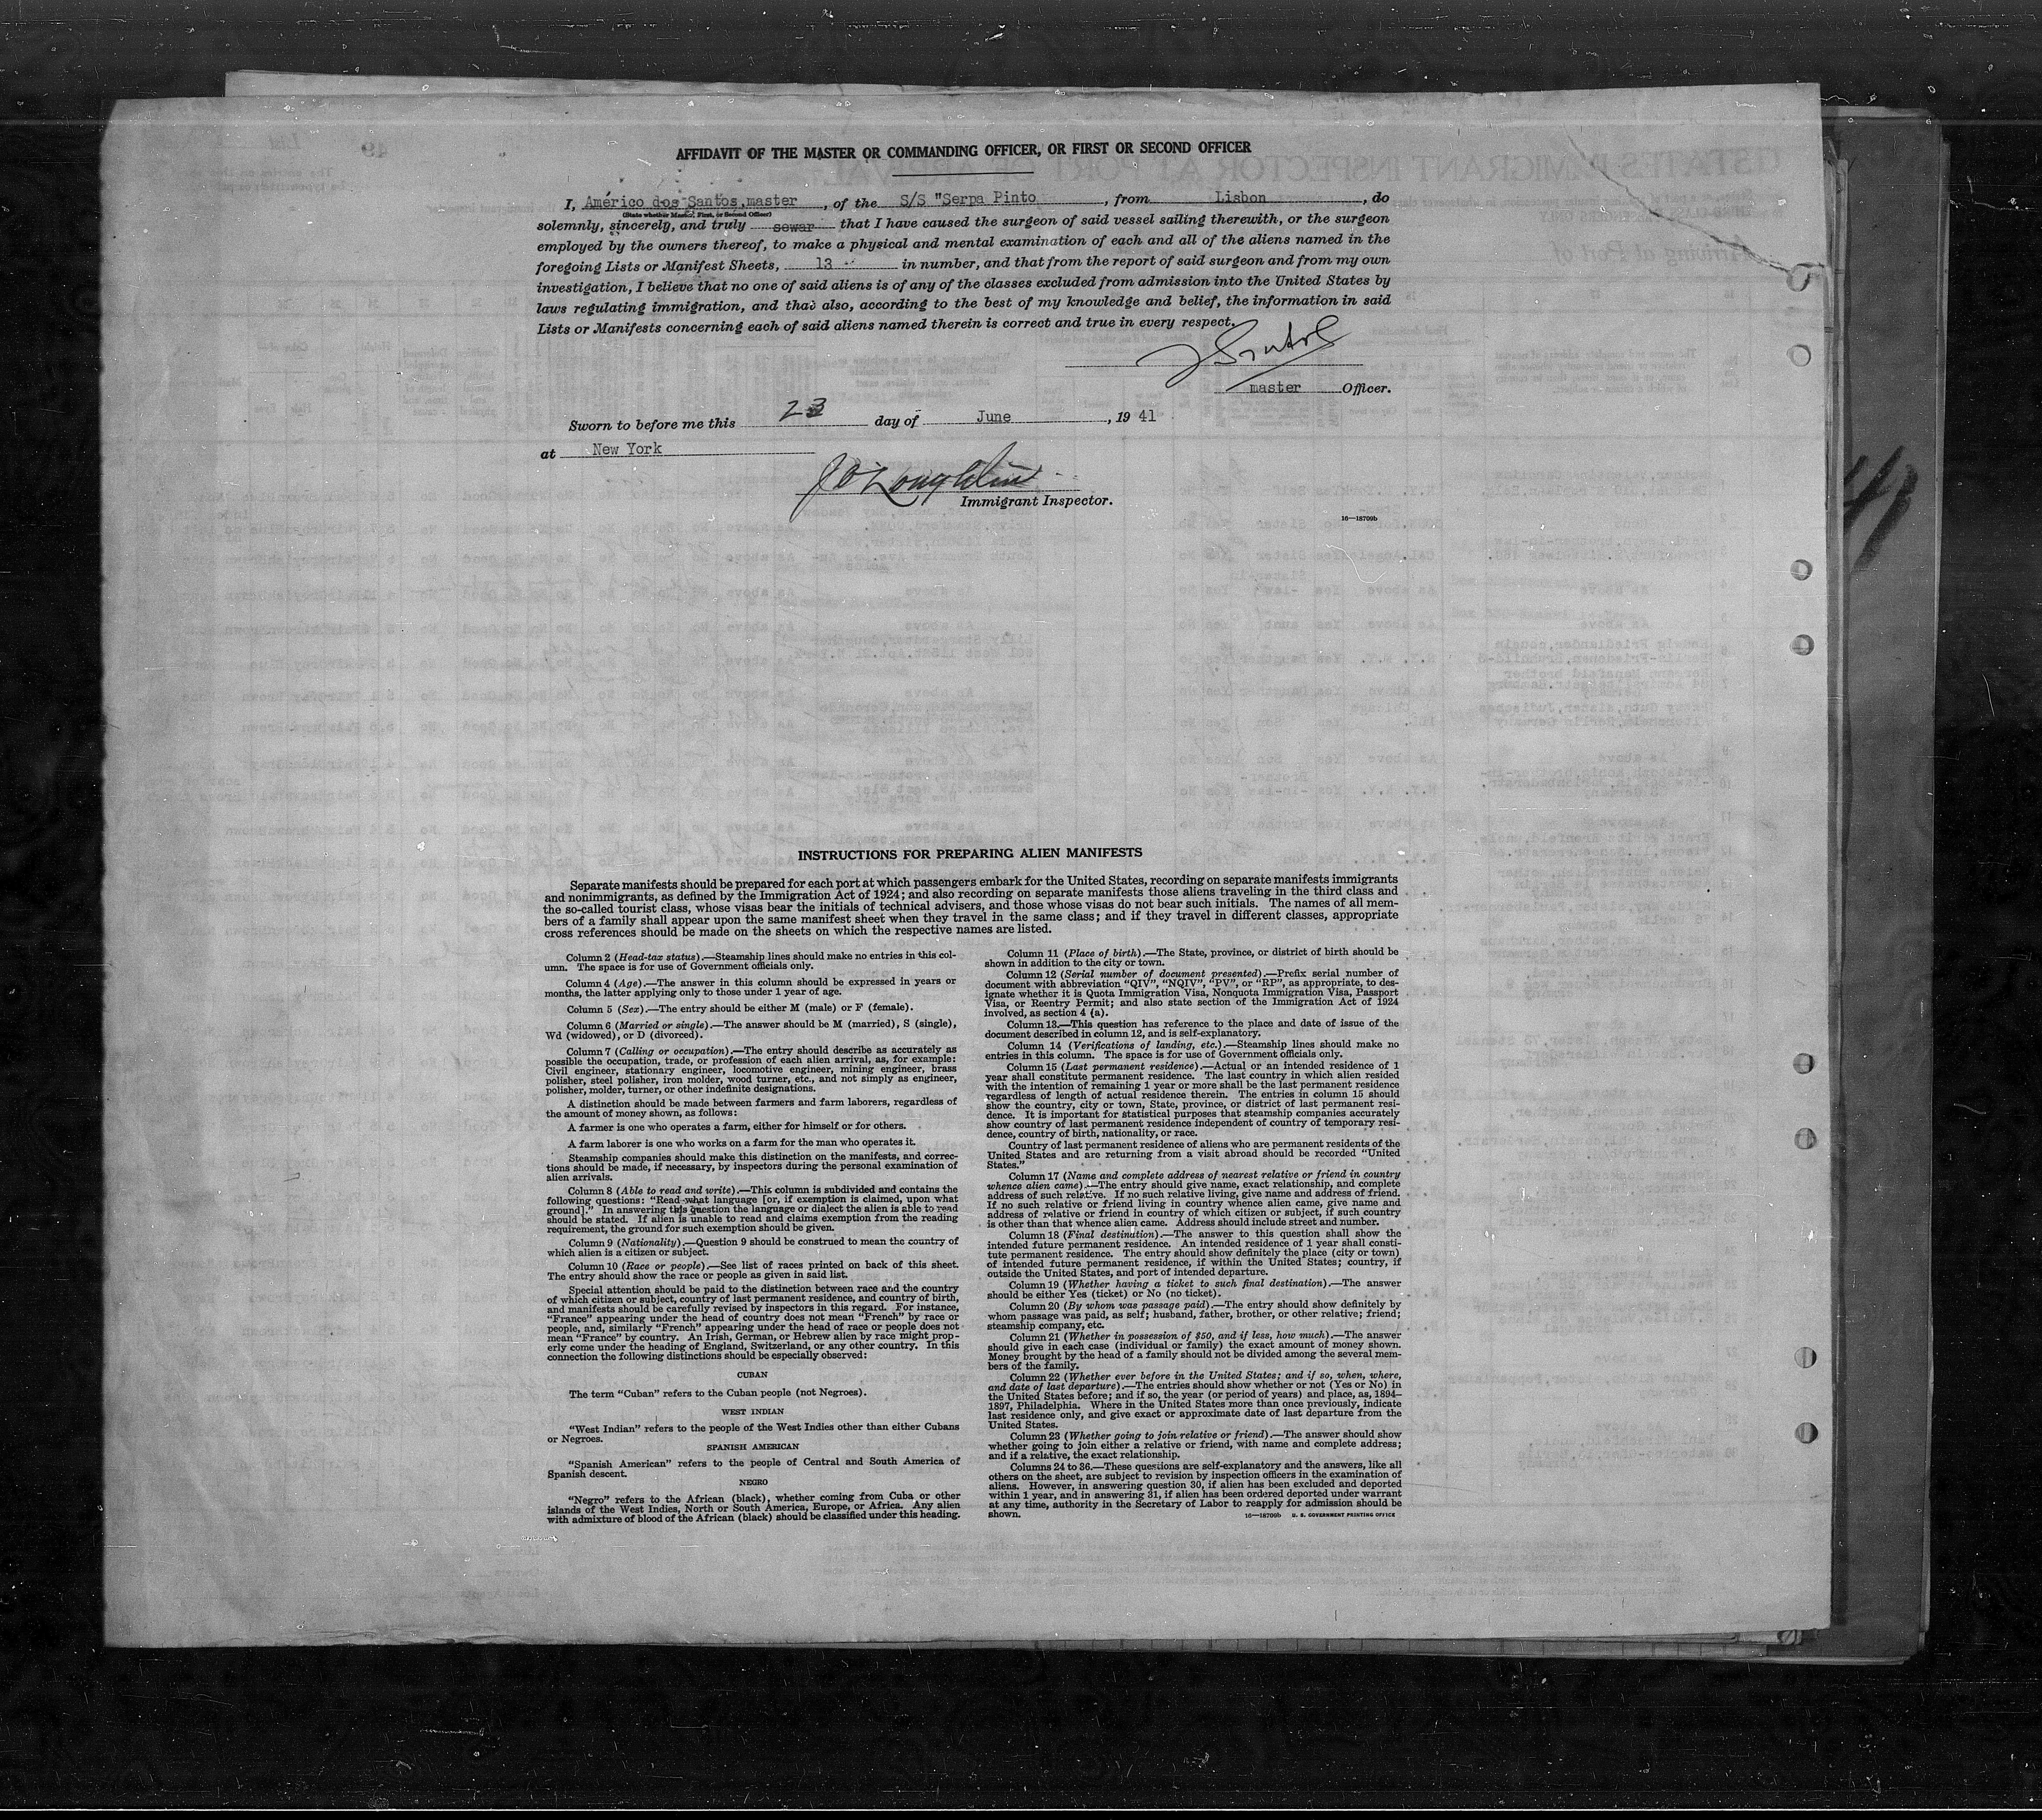 AFFIDAVIT OF THE MASTER OR COMMANDING OFFICER, OR FIRST OR SECOND OFFICER
I, Américo dos Santos, master, of the S/S "Serpa Pinto, from Lisbon, do
(State whether Master, First, or Second Officer)
solemnly, sincerely, and truly sewar that I have caused the surgeon of said vessel sailing therewith, or the surgeon
employed by the owners thereof, to make a physical and mental examination of each and all of the aliens named in the
foregoing Lists or Manifest Sheets, 13 in number, and that from the report of said surgeon and from my own
investigation, I believe that no one of said aliens is of any of the classes excluded from admission into the United States by
laws regulating immigration, and that also, according to the best of my knowledge and belief, the information in said
Lists or Manifests concerning each of said aliens named therein is correct and true in every respect.
master Officer.
Sworn to before me this 23 day of June, 19 41
at New York
Immigrant Inspector.
16—18709b
INSTRUCTIONS FOR PREPARING ALIEN MANIFESTS
Separate manifests should be prepared for each port at which passengers embark for the United States, recording on separate manifests immigrants
and nonimmigrants, as defined by the Immigration Act of 1924; and also recording on separate manifests those aliens traveling in the third class and
the so-called tourist class, whose visas bear the initials of technical advisers, and those whose visas do not bear such initials. The names of all mem-
bers of a family shall appear upon the same manifest sheet when they travel in the same class; and if they travel in different classes, appropriate
cross references should be made on the sheets on which the respective names are listed.
Column 2 (Head-tax status).—Steamship lines should make no entries in this col-
umn. The space is for use of Government officials only.
Column 4 (Age).—The answer in this column should be expressed in years or
months, the latter applying only to those under 1 year of age.
Column 5 (Sex).—The entry should be either M (male) or F (female).
Column 6 (Married or single).—The answer should be M (married), S (single),
Wd (widowed), or D (divorced).
Column 7 (Calling or occupation).—The entry should describe as accurately as
possible the occupation, trade, or profession of each alien arrival, as, for example:
Civil engineer, stationary engineer, locomotive engineer, mining engineer, brass
polisher, steel polisher, iron molder, wood turner, etc., and not simply as engineer,
polisher, molder, turner, or other indefinite designations.
A distinction should be made between farmers and farm laborers, regardless of
the amount of money shown, as follows:
A farmer is one who operates a farm, either for himself or for others.
A farm laborer is one who works on a farm for the man who operates it.
Steamship companies should make this distinction on the manifests, and correc-
tions should be made, if necessary, by inspectors during the personal examination of
alien arrivals.
Column 8 (Able to read and write).—This column is subdivided and contains the
following questions: "Read what language [or, if exemption is claimed, upon what
ground]." In answering this question the language or dialect the alien is able to read
should be stated. If alien is unable to read and claims exemption from the reading
requirement, the ground for such exemption should be given.
Column 9 (Nationality).—Question 9 should be construed to mean the country of
which alien is a citizen or subject.
Column 10 (Race or people).—See list of races printed on back of this sheet.
The entry should show the race or people as given in said list.
Special attention should be paid to the distinction between race and the country
of which citizen or subject, country of last permanent residence, and country of birth,
and manifests should be carefully revised by inspectors in this regard. For instance,
"France" appearing under the head of country does not mean "French" by race or
people, and, similarly "French" appearing under the head of race or people does not
mean "France" by country. An Irish, German, or Hebrew alien by race might prop-
erly come under the heading of England, Switzerland, or any other country. In this
connection the following distinctions should be especially observed:
CUBAN
The term "Cuban" refers to the Cuban people (not Negroes).
WEST INDIAN
"West Indian" refers to the people of the West Indies other than either Cubans
or Negroes.
SPANISH AMERICAN
"Spanish American" refers to the people of Central and South America of
Spanish descent.
NEGRO
"Negro" refers to the African (black), whether coming from Cuba or other
islands of the West Indies, North or South America, Europe, or Africa. Any alien
with admixture of blood of the African (black) should be classified under this heading.
Column 11 (Place of birth).—The State, province, or district of birth should be
shown in addition to the city or town.
Column 12 (Serial number of document presented).—Prefix serial number of
document with abbreviation "QIV", "NQIV", "PV", or "RP", as appropriate, to des-
ignate whether it is Quota Immigration Visa, Nonquota Immigration Visa, Passport
Visa, or Reentry Permit; and also state section of the Immigration Act of 1924
involved, as section 4 (a).
Column 13.—This question has reference to the place and date of issue of the
document described in column 12, and is self-explanatory.
Column 14 (Verifications of landing, etc.).—Steamship lines should make no
entries in this column. The space is for use of Government officials only.
Column 15 (Last permanent residence).—Actual or an intended residence of 1
year shall constitute permanent residence. The last country in which alien resided
with the intention of remaining 1 year or more shall be the last permanent residence
regardless of length of actual residence therein. The entries in column 15 should
show the country, city or town, State, province, or district of last permanent resi-
dence. It is important for statistical purposes that steamship companies accurately
show country of last permanent residence independent of country of temporary resi-
dence, country of birth, nationality, or race.
Country of last permanent residence of aliens who are permanent residents of the
United States and are returning from a visit abroad should be recorded "United
States."
Column 17 (Name and complete address of nearest relative or friend in country
whence alien came).—The entry should give name, exact relationship, and complete
address of such relative. If no such relative living, give name and address of friend.
If no such relative or friend living in country whence alien came, give name and
address of relative or friend in country of which citizen or subject, if such country
is other than that whence alien came. Address should include street and number.
Column 18 (Final destination).—The answer to this question shall show the
intended future permanent residence. An intended residence of 1 year shall consti-
tute permanent residence. The entry should show definitely the place (city or town)
of intended future permanent residence, if within the United States; country, if
outside the United States, and port of intended departure.
Column 19 (Whether having a ticket to such final destination).—The answer
should be either Yes (ticket) or No (no ticket).
Column 20 (By whom was passage paid).—The entry should show definitely by
whom passage was paid, as self; husband, father, brother, or other relative; friend;
steamship company, etc.
Column 21 (Whether in possession of $50, and if less, how much).—The answer
should give in each case (individual or family) the exact amount of money shown.
Money brought by the head of a family should not be divided among the several mem-
bers of the family.
Column 22 (Whether ever before in the United States; and if so, when, where,
and date of last departure).—The entries should show whether or not (Yes or No) in
the United States before; and if so, the year (or period of years) and place, as, 1894–
1897, Philadelphia. Where in the United States more than once previously, indicate
last residence only, and give exact or approximate date of last departure from the
United States.
Column 23 (Whether going to join relative or friend).—The answer should show
whether going to join either a relative or friend, with name and complete address;
and if a relative, the exact relationship.
Columns 24 to 36.—These questions are self-explanatory and the answers, like all
others on the sheet, are subject to revision by inspection officers in the examination of
aliens. However, in answering question 30, if alien has been excluded and deported
within 1 year, and in answering 31, if alien has been ordered deported under warrant
at any time, authority in the Secretary of Labor to reapply for admission should be
shown.
16—18709b U. S. GOVERNMENT PRINTING OFFICE